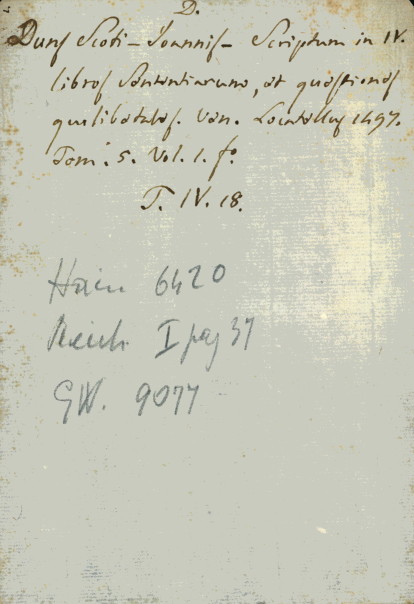 D.
Duns Scoti - Joannis - Scriptum in IV.
libros Sententiarum, et quæstiones
quolibetales. Ven. Locatellus 1497.
Tom. 5. Vol. 1. fo.
T. IV. 18.
Hain 6420
Reich I pag 37
GW. 9077